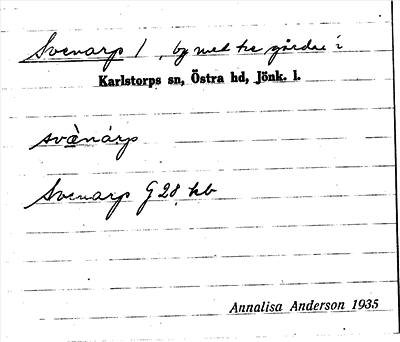 Svenarp 1, by med tre gårdar i
Karlstorps sn, Östra hd, Jönk. l.
svènàrp
Svenarp G 28 kb
Annalisa Anderson 1935